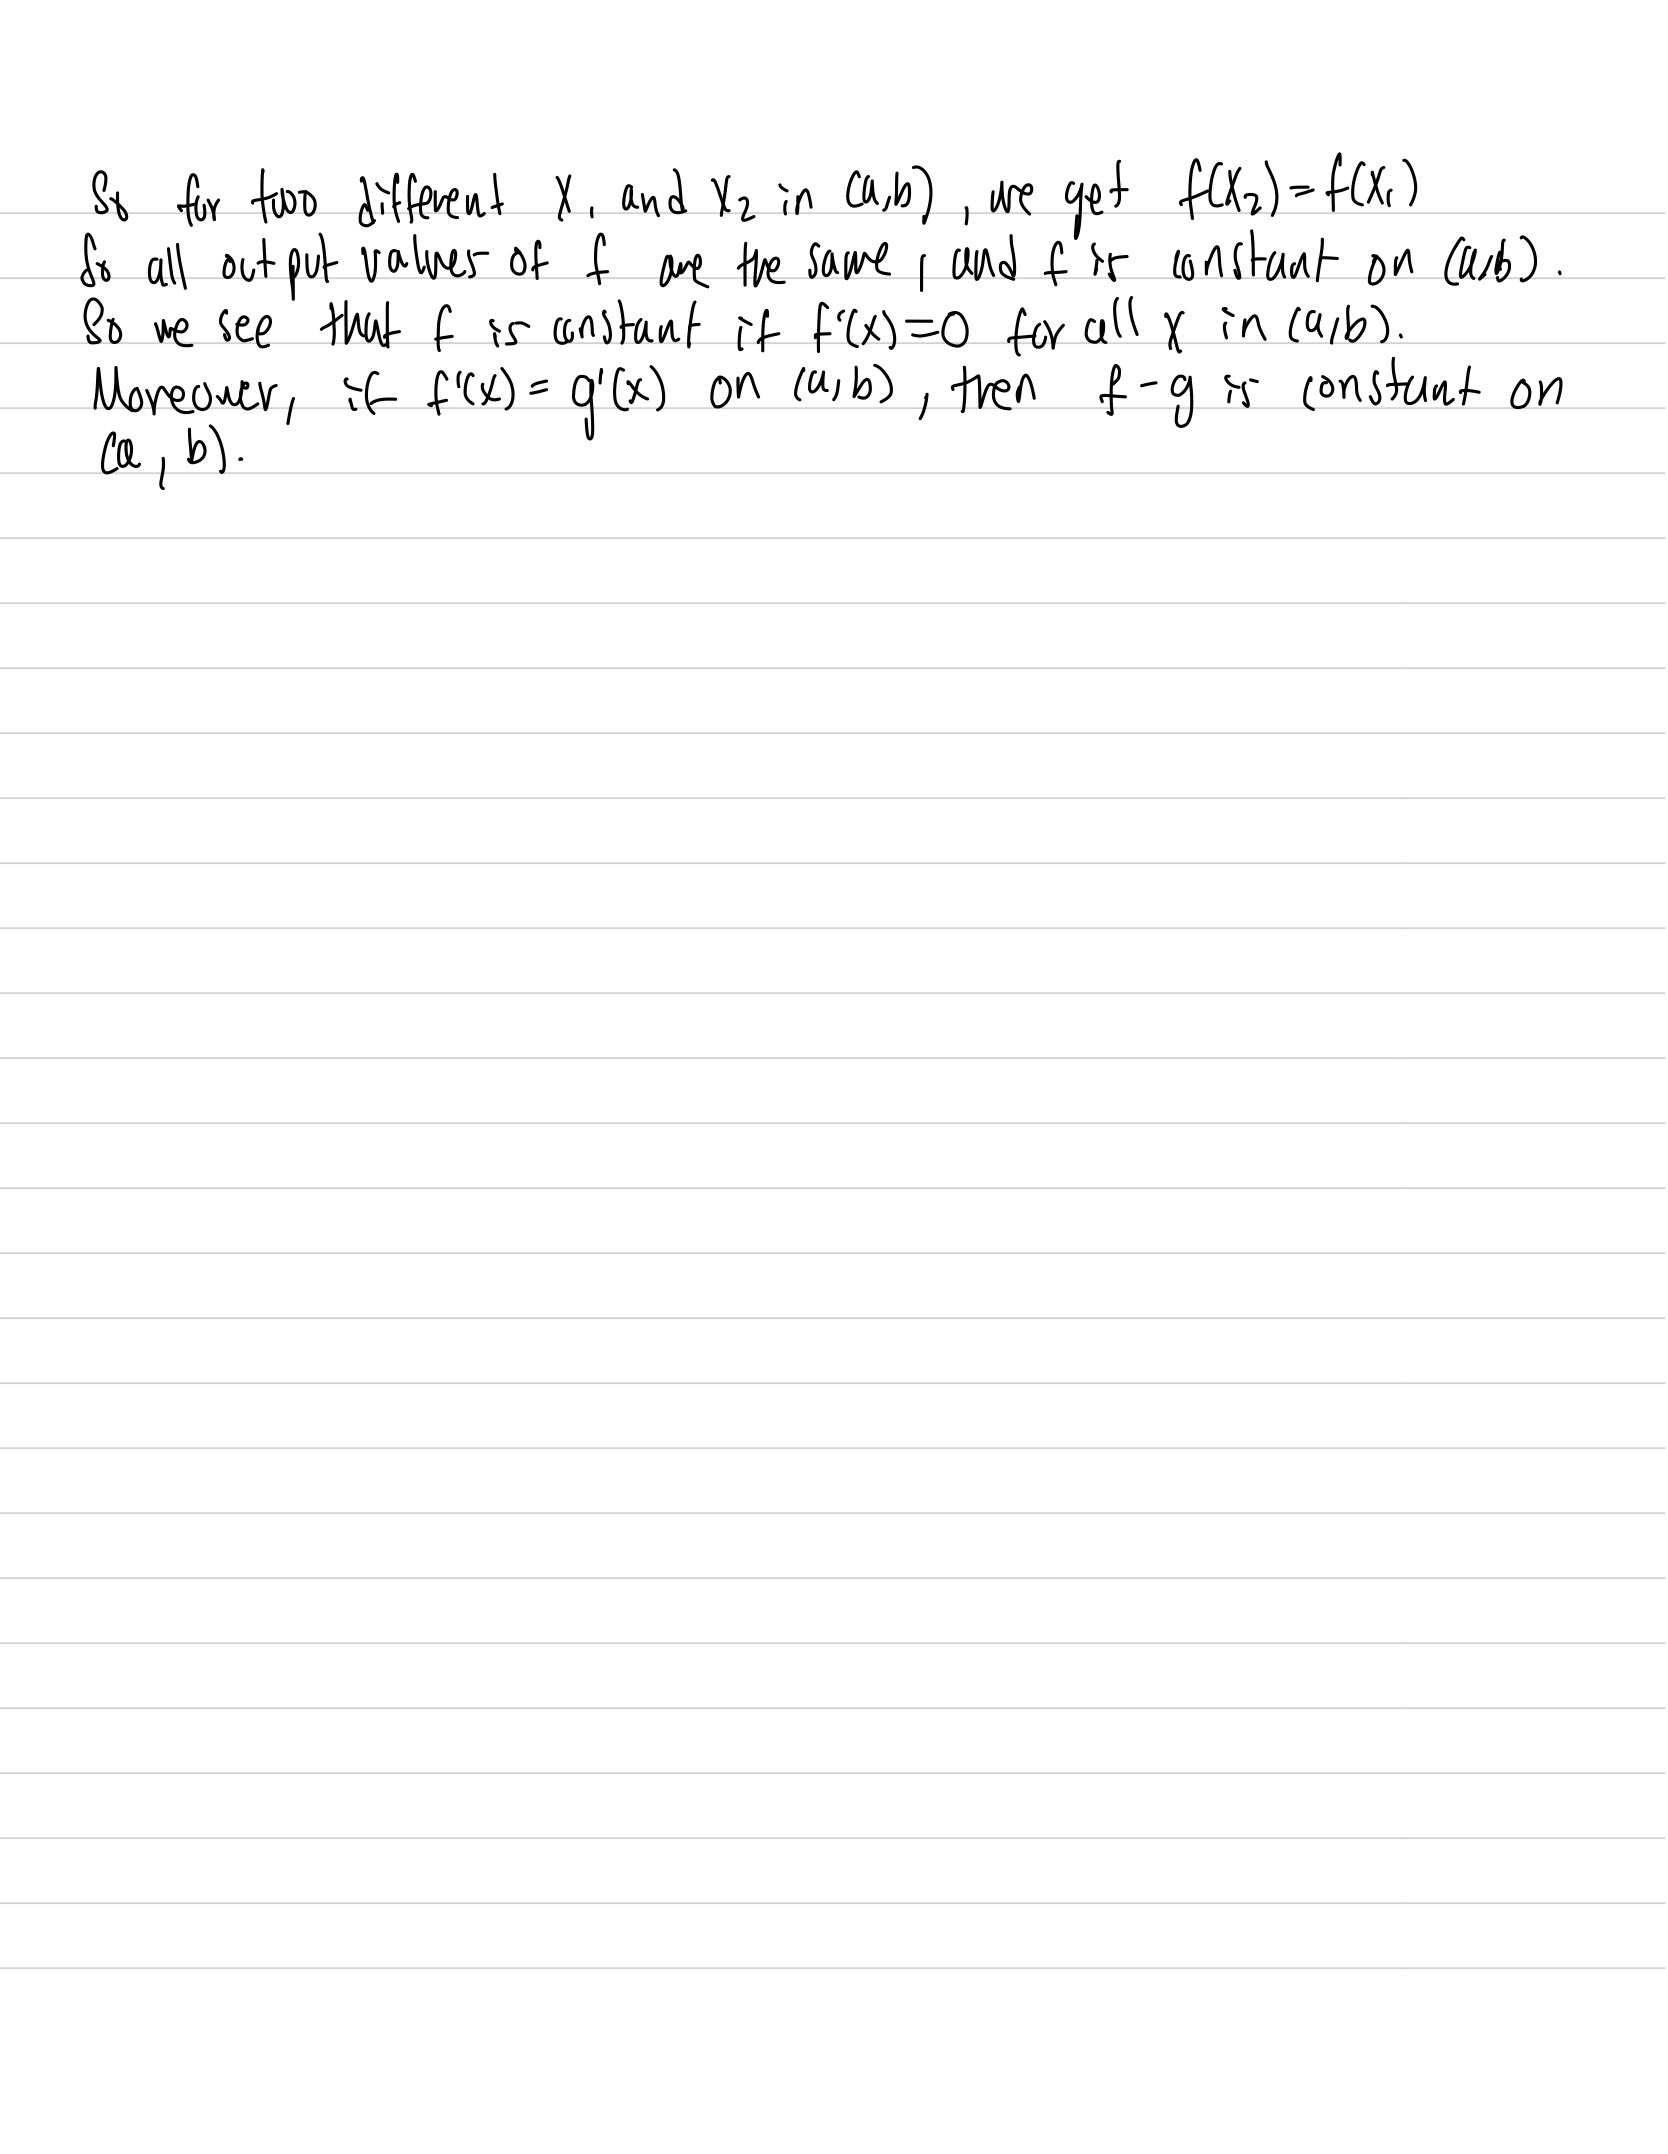 So for two different x₁ and x₂ in (a,b), we get f(x₂)=f(x₁)
So all output values of f are the same, and f is constant on (a,b).
So we see that f is constant if f'(x)=0 for all x in (a,b).
Moreover, if f'(x)=g'(x) on (a,b), then f-g is constant on
(a,b).